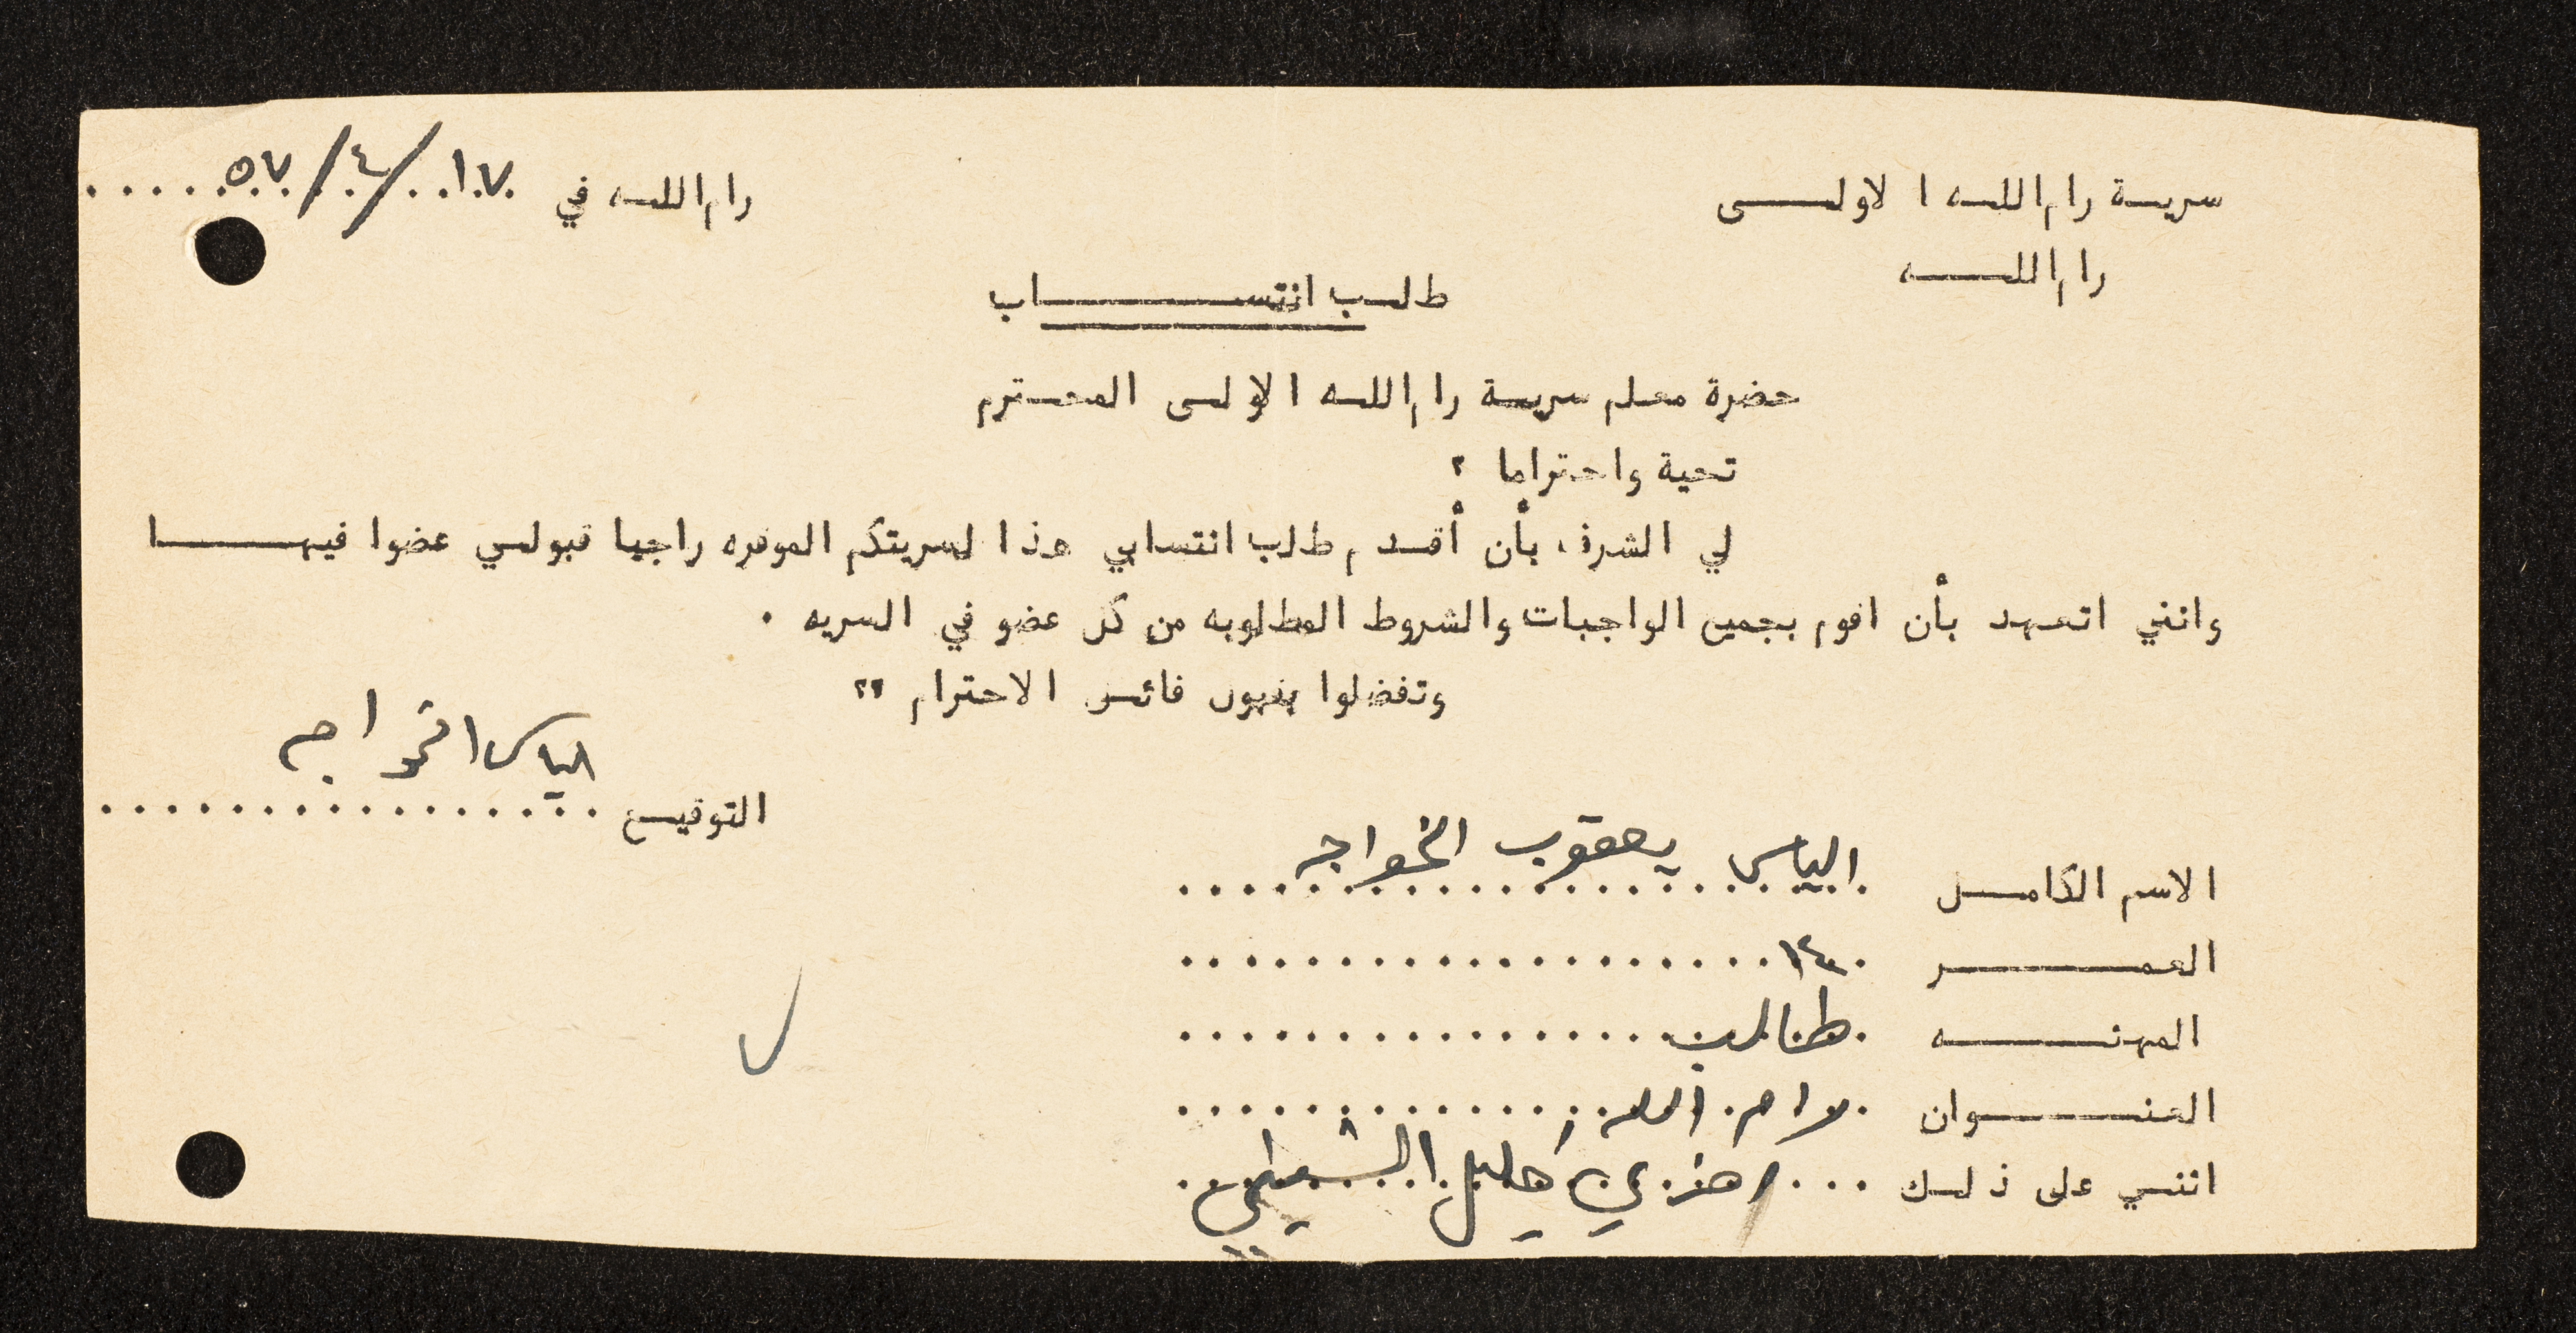 سرية رام الله الاولى
رام الله في ١٧/٤/٥٧
رام الله
طلب انتساب
حضرة معلم سرية رام الله الاولى المحترم
تحية واحتراما ؟
لي الشرف، بأن أقدم طلب انتسابي هذا لسريتكم الموقره راجيا قبولي عضوا فيها
وانني اتعهد بأن اقوم بجميع الواجبات والشروط المطلوبه من كل عضو في السريه .
وتفضلوا بقبول فائق الاحترام ؟؟
الياس الخواجه
التوقيع
الاسم الكامل الياس يعقوب الخواجه
العمر ١٤
المهنه طالب
العنوان رام الله
اثني على ذلك هنري خليل